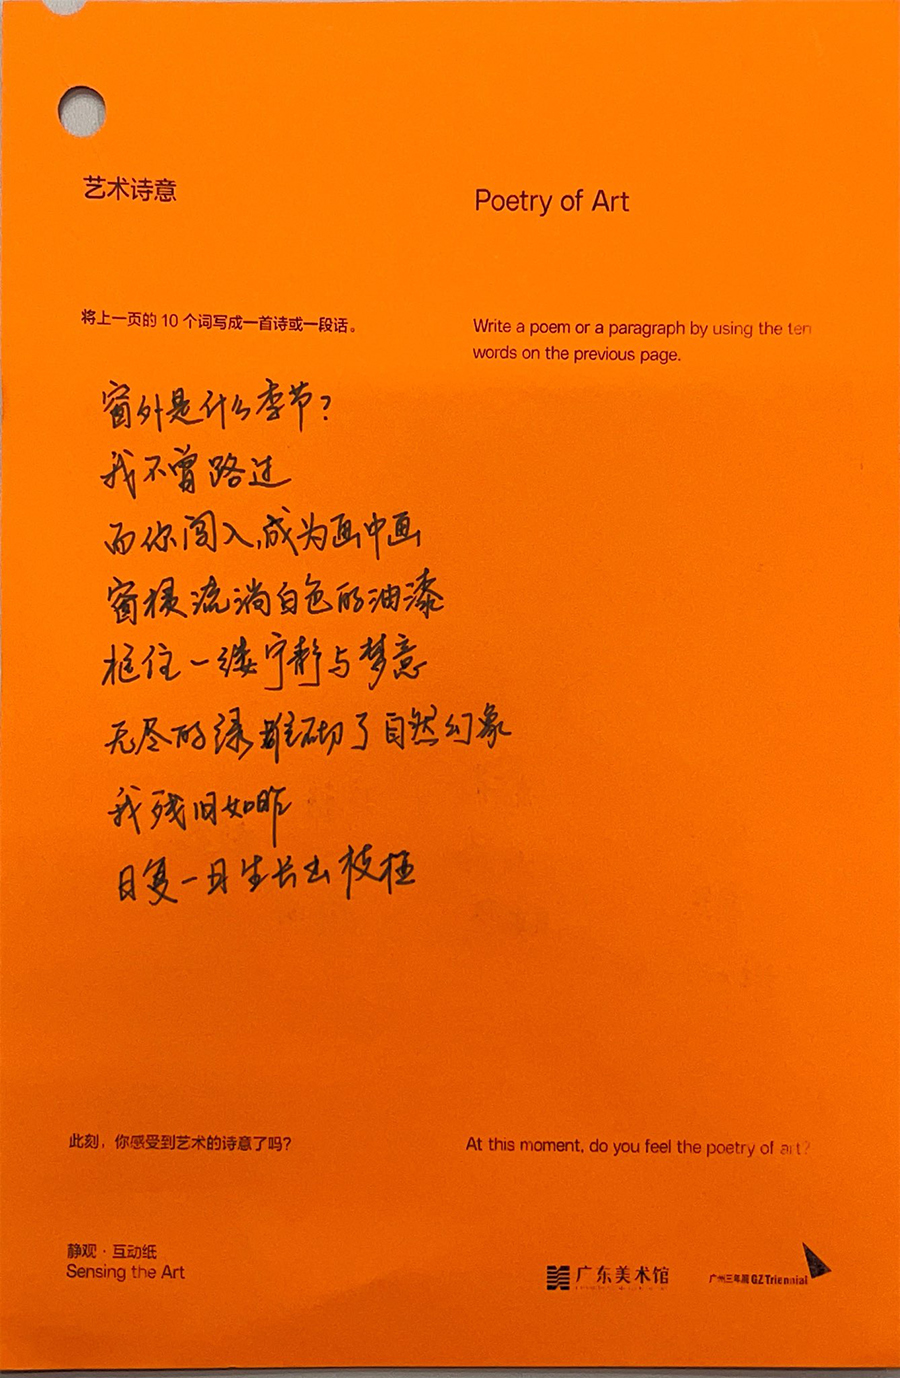 艺术诗意
Poetry of Art
将上一页的 10 个词写成一首诗或一段话。
Write a poem or a paragraph by using the ten
words on the previous page.
窗外是什么季节?
我不曾路过
而你闯入,成为画中画
窗棂流淌白色的油漆
框住一缕宁静与梦意
无尽的绿堆砌了自然幻象
我残旧如昨
日复一日生长出枝桠
此刻，你感受到艺术的诗意了吗？
At this moment, do you feel the poetry of art?
静观·互动纸
Sensing the Art
广东美术馆
广州三年展 GZ Triennial